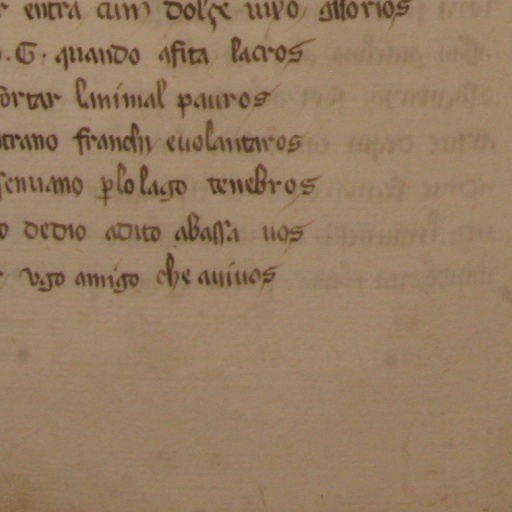 entra cum dolçe uiso
.G. quando afita lacros
ortar lanimal pauros
trano franchi euolantaros
senuano plo lago tenebros
o dedio adito abassa uos
ugo amigo che auiuos